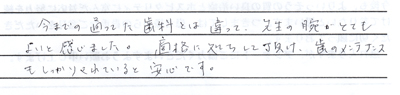 今までの通ってた歯科とは違って、先生の腕がとても
よいと感じました。厳格に対応して頂け、歯のメンテナンス
もしっかりされていると安心です。